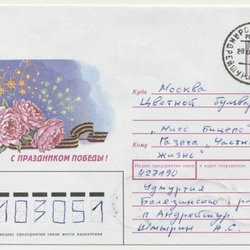 Куда Москва
Цветной бульвар
"Мисс Бицепс"
Кому Газета "Частная
жизнь"
С ПРАЗДНИКОМ ПОБЕДЫ!
Индекс предприятия связи и адрес отправителя
427190
Удмуртия
Балезинский р-н
п Андрейшур
Штырин А.С
103051
Индекс предприятия связи места назначения